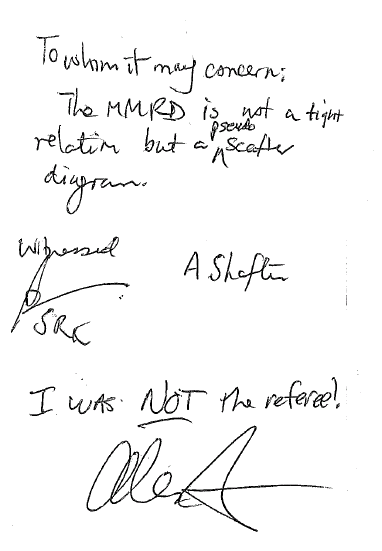 To whom it may concern:
The MMRD is not a tight
relation but a ^pseudo Scatter
diagram.
Witnessed
SRK
A Shafter
I was NOT the referee!
Alex